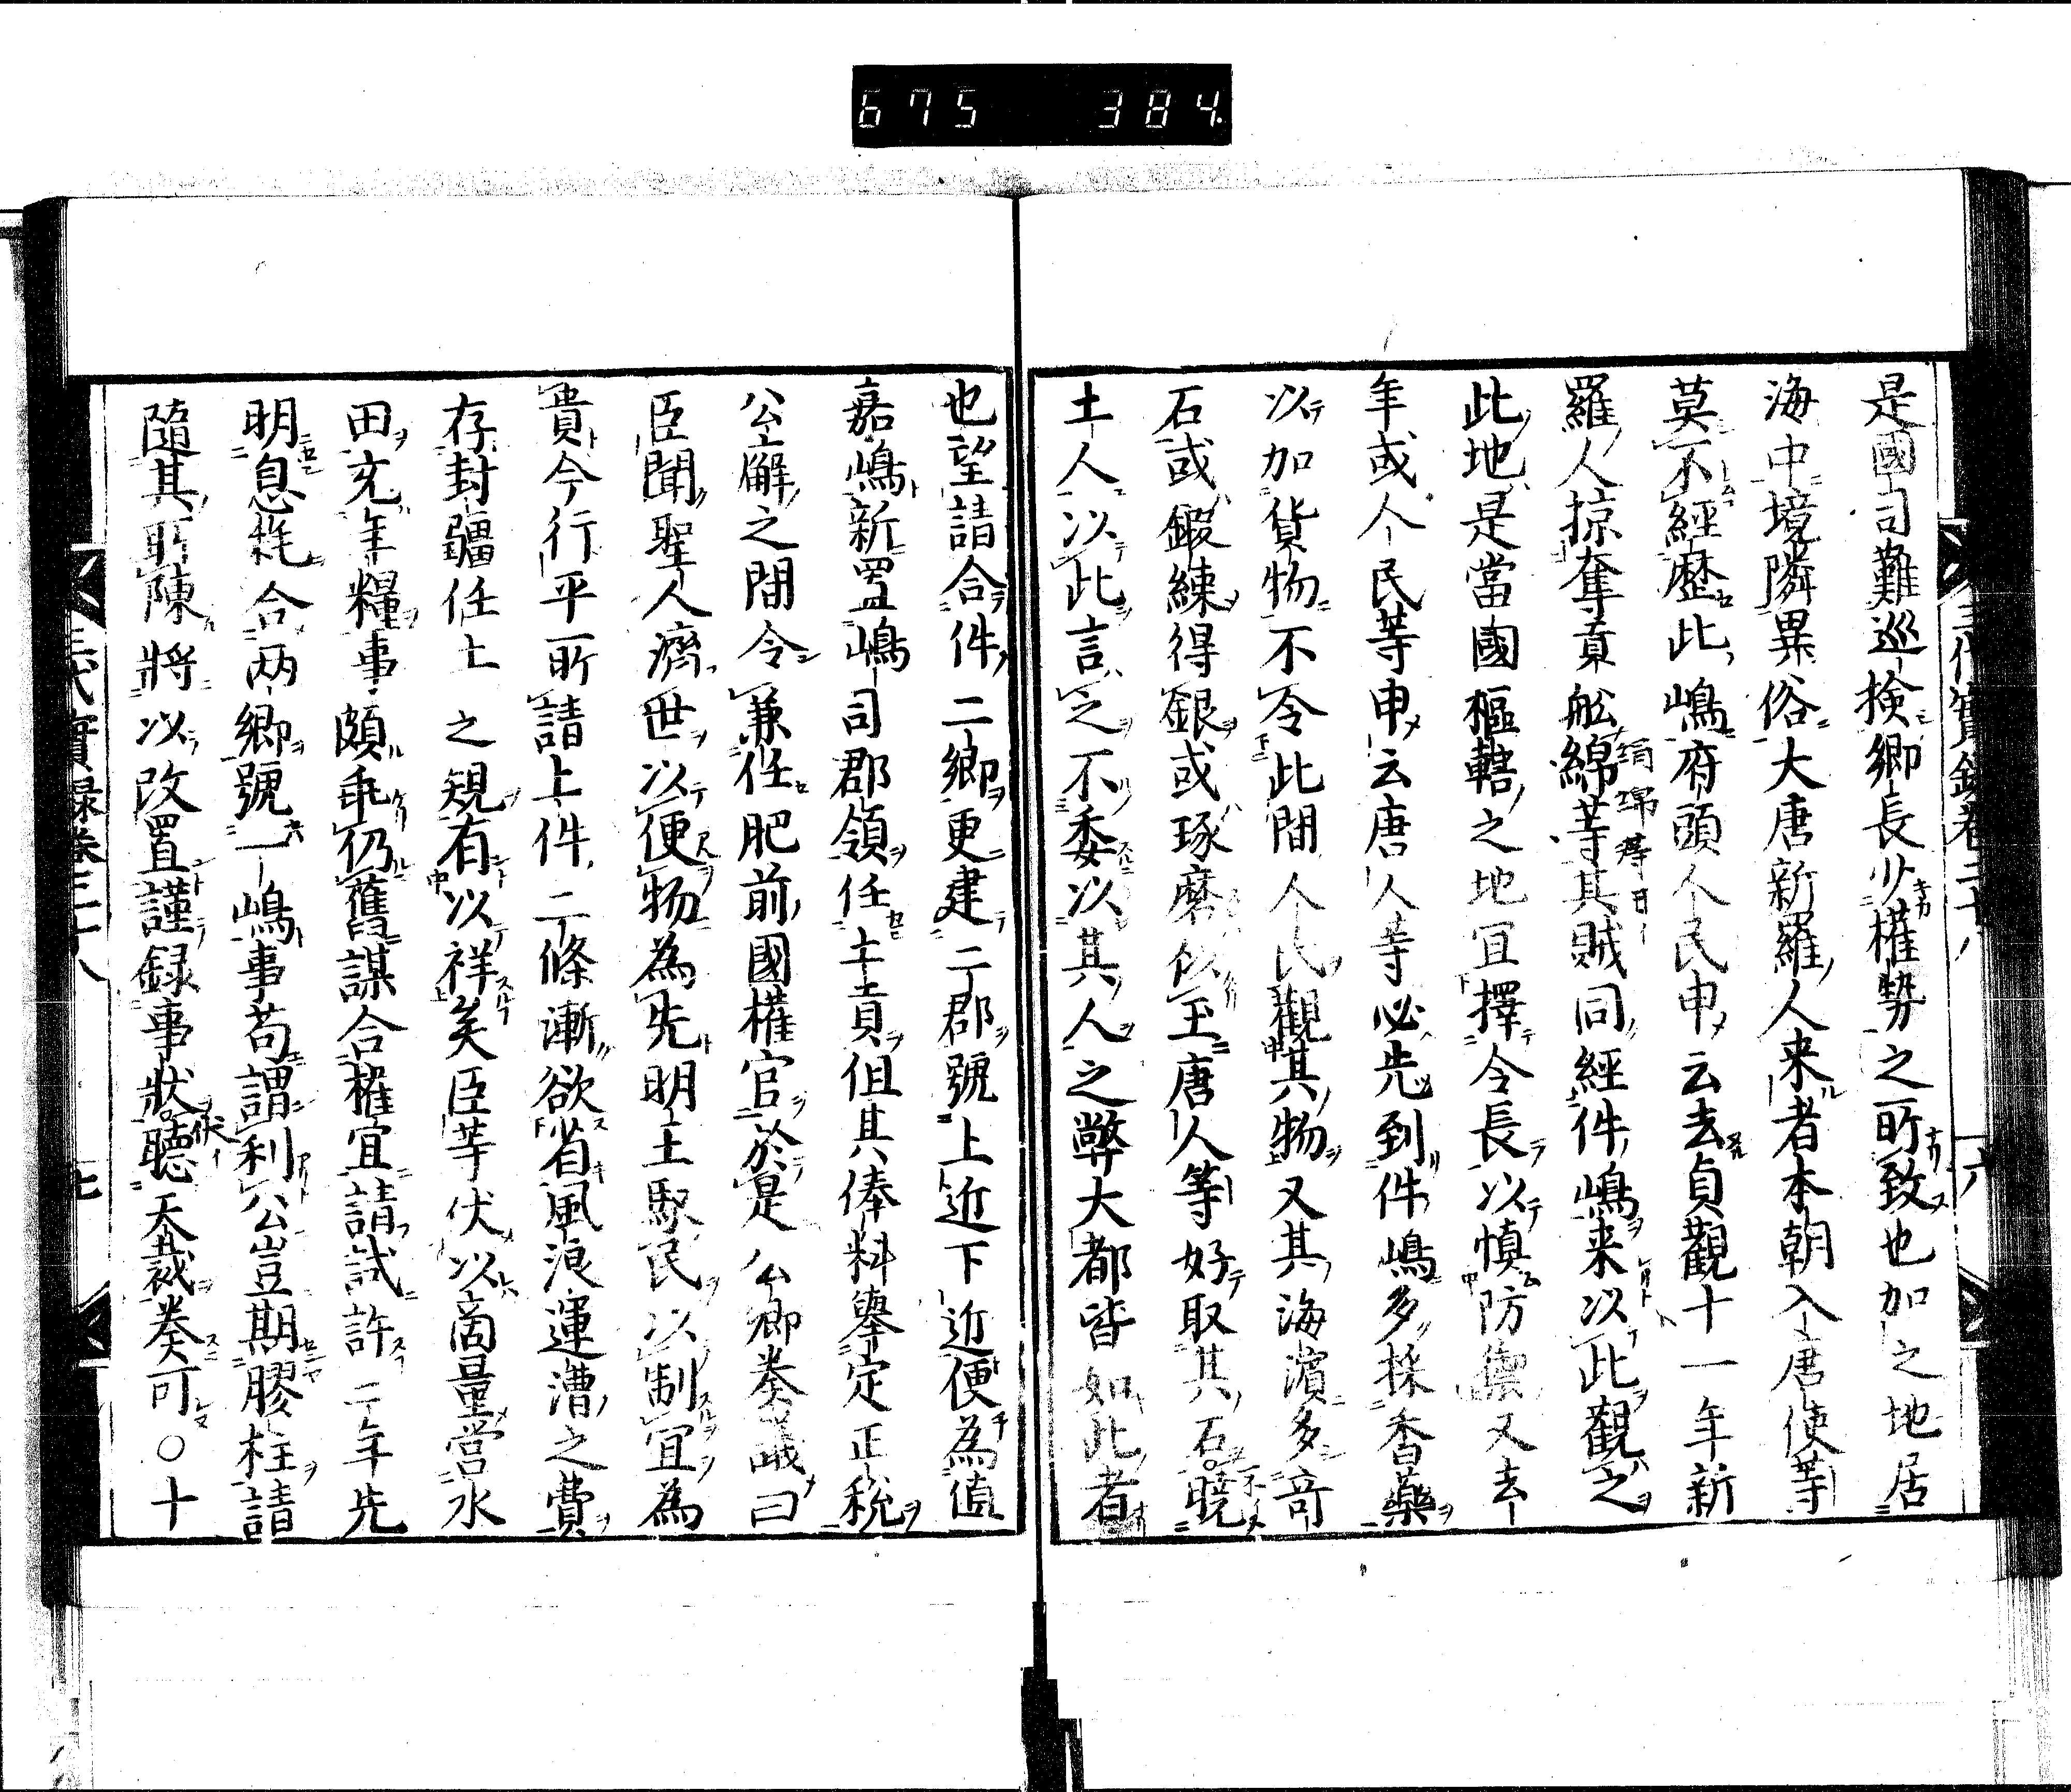 675 384
是國司難巡撿鄉長少權勢之所致也加之地居
海中境隣異俗大唐新羅人来者本朝入唐使等
莫不經歷此嶋府頭人民申云去貞觀十一年新
羅人掠奪貢舩綿等其賊同經件嶋来以此觀之
此地是當國樞轄之地宜擇令長以慎防禦又去
年或人民等申云唐人等必先到件嶋多採香藥
以加貨物不令此間人民觀其物又其海濱多奇
石或鍛練得銀或琢磨似玉唐人等好取其石曉
土人以此言之不委以其人之弊大都皆如此者
也望請合件二鄉更建二郡號上近下近便為值
嘉嶋新置嶋司郡領任土貢但其俸料擧定正稅
公廨之間令兼任肥前國權官於是公卿奏議曰
臣聞聖人濟世以便物為先明主馭民以制宜為
貴今行平所請上件二條漸欲省風浪運漕之費
存封疆任土之規有以祥矣臣等伏以商量營水
田充年糧事頗乖仍舊謀合權宜請試許二年先
明息耗合两鄉號一嶋事苟謂利公豈期膠柱請
隨其所陳將以改置謹録事狀聽天裁奏可○十
三代實録卷三十八
七